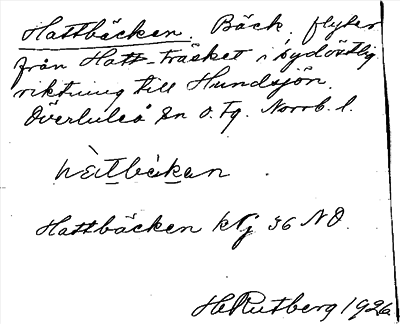 Hattbäcken. Bäck, flyter
från Hatt-träsket i sydöstlig
riktning till Hundsjön.
Överluleå sn o. tg. Norrb. l.
Hattbäcken kbl 36 NO.
H. Rutberg 1926